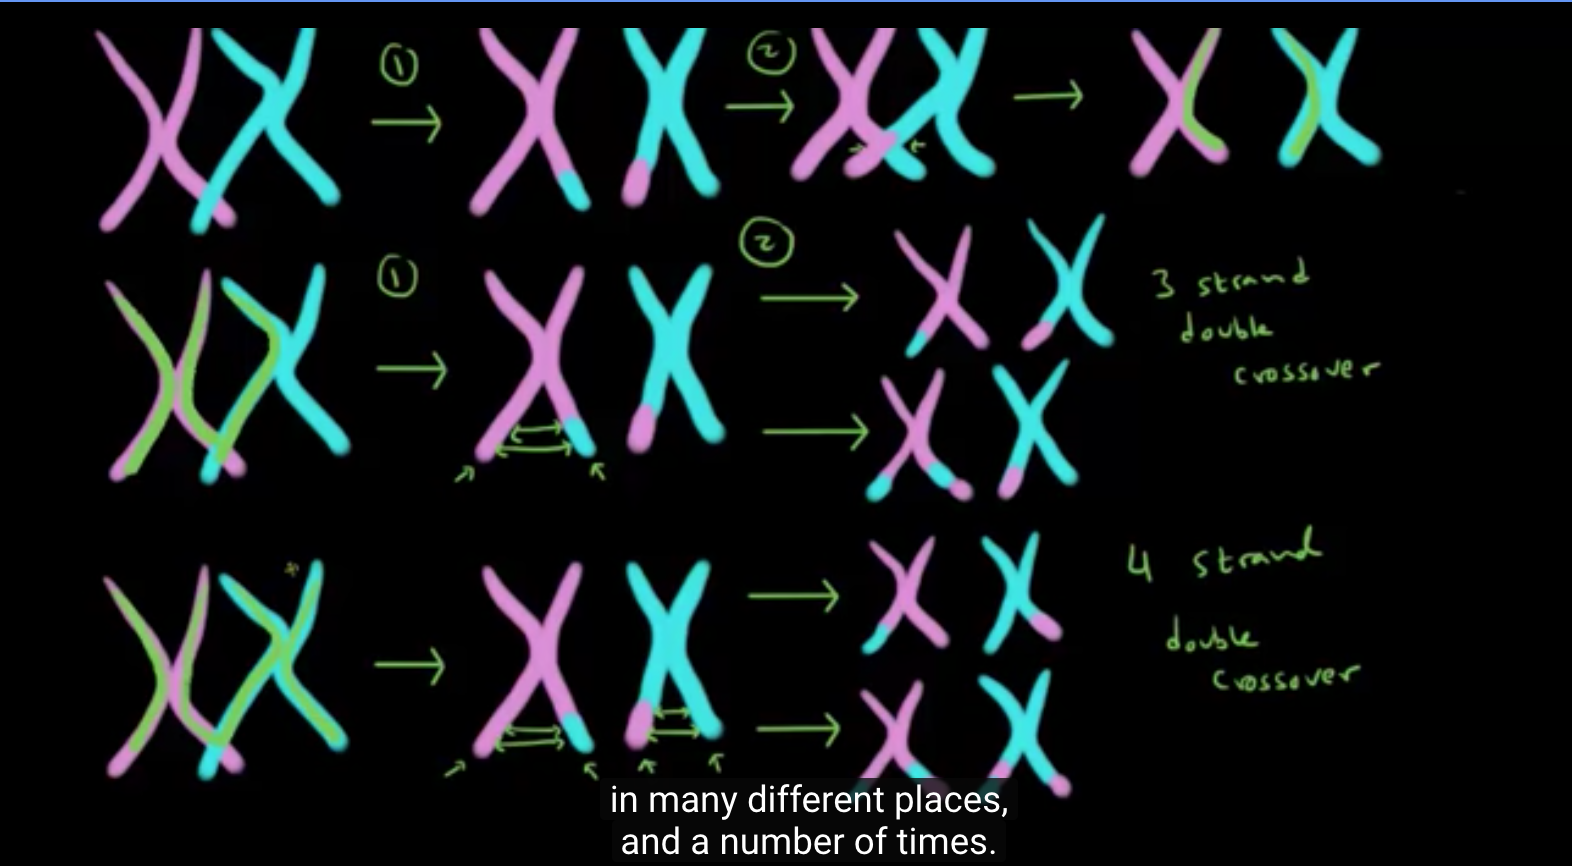 1
2
1
2
3 strand
double
crossover
4 strand
double
crossover
in many different places,
and a number of times.